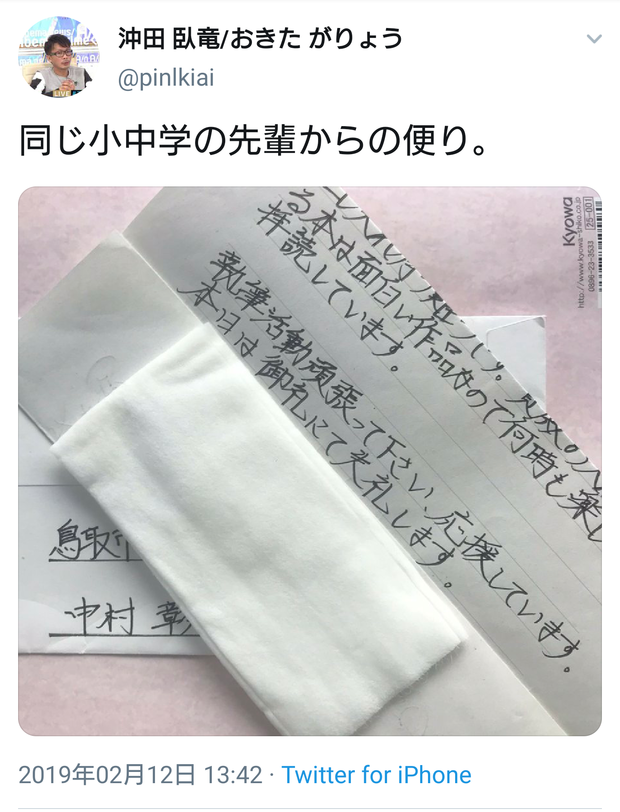 沖田 臥竜/おきた がりょう
@pinlkiai
同じ小中学の先輩からの便り。
る本は面白い作品なので何時も楽し
拝読しています。
執筆活動頑張って下さい、応援しています。
本日は御礼にて失礼します。
鳥取
中村
Kyowa
25-001
0896-23-3533
LIVE
2019年02月12日 13:42 · Twitter for iPhone